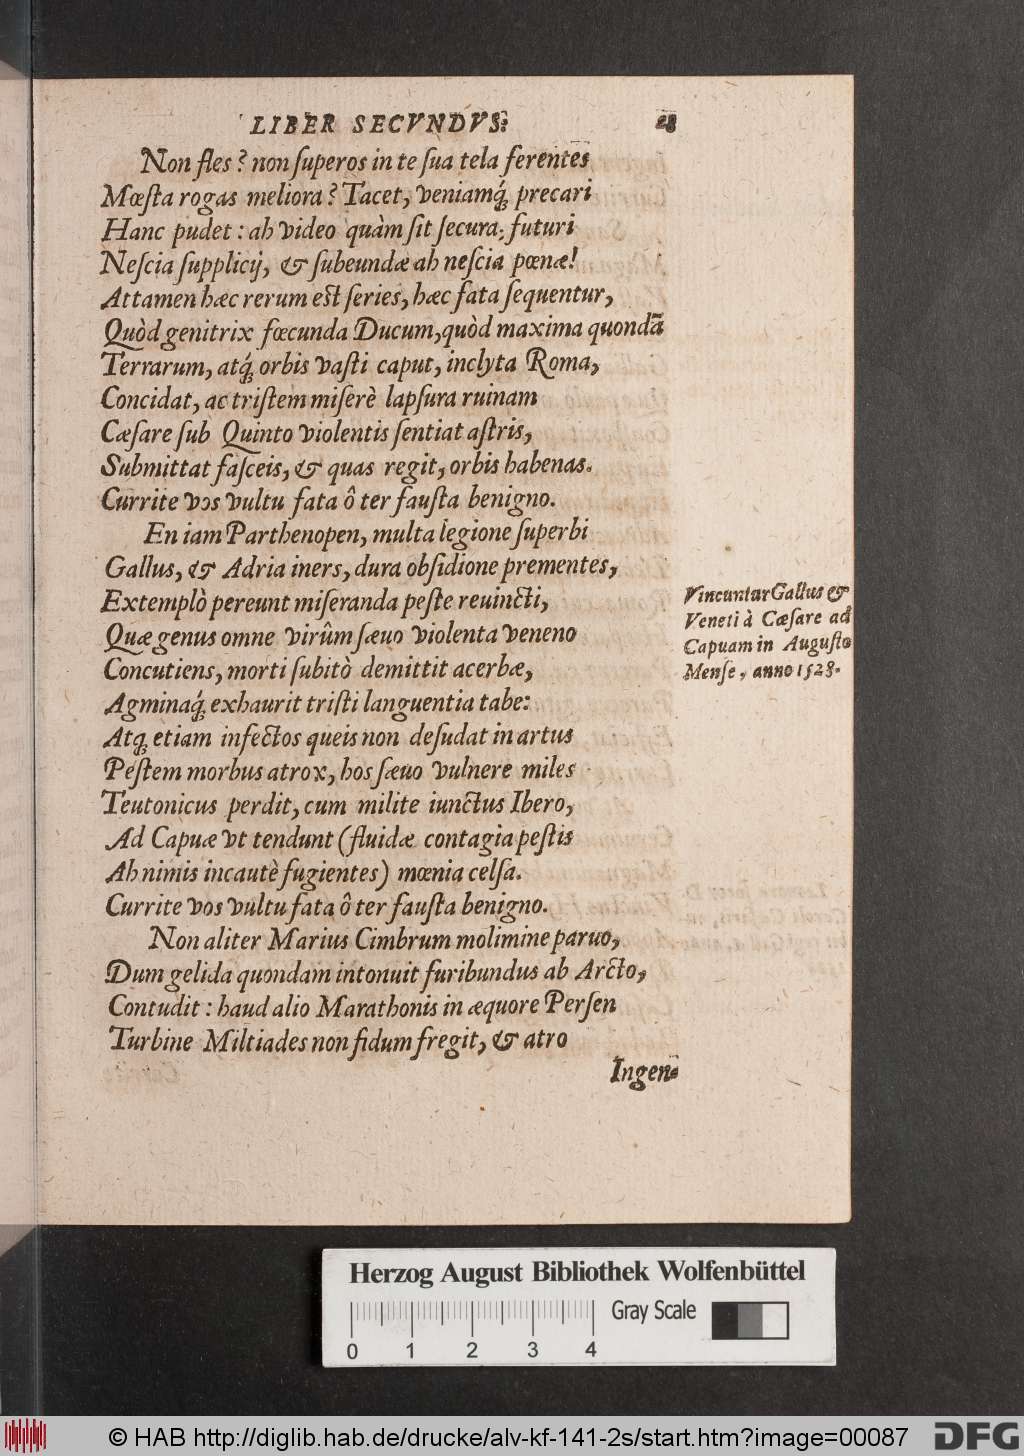 LIBER SECVNDVS.
28
Non fles? non ſuperos in te ſua tela ferentes
Mœſta rogas meliora? Tacet, veniamq́; precari
Hanc pudet: ah video quàm ſit ſecura, futuri
Neſcia ſupplicij, & ſubeundæ ah neſcia pœnæ!
Attamen hæc rerum est ſeries, hæc fata ſequentur,
Quòd genitrix fœcunda Ducum, quòd maxima quondā
Terrarum, atq́; orbis vaſti caput, inclyta Roma,
Concidat, ac triſtem miſerè lapſura ruinam
Cæſare ſub Quinto violentis ſentiat aſtris,
Submittat faſceis, & quas regit, orbis habenas.
Currite vos vultu fata ô ter fauſta benigno.
En iam Parthenopen, multa legione ſuperbi
Gallus, & Adria iners, dura obſidione prementes,
Extemplò pereunt miſeranda peſte reuincti,
Quæ genus omne virûm ſæuo violenta veneno
Concutiens, morti ſubitò demittit acerbæ,
Agminaq́; exhaurit triſti languentia tabe:
Atq; etiam infectos queis non deſudat in artus
Peſtem morbus atrox, hos ſæuo vulnere miles
Teutonicus perdit, cum milite iunctus Ibero,
Ad Capuæ vt tendunt (fluidæ contagia peſtis
Ah nimis incautè fugientes) mœnia celſa.
Currite vos vultu fata ô ter fauſta benigno.
Non aliter Marius Cimbrum molimine paruo,
Dum gelida quondam intonuit furibundus ab Arcto,
Contudit: haud alio Marathonis in æquore Perſen
Turbine Miltiades non fidum fregit, & atro
Ingen-
Vincuntur Gallus &
Veneti à Cæſare ad
Capuam in Auguſto
Menſe, anno 1528.
Herzog August Bibliothek Wolfenbüttel
Gray Scale
0 1 2 3 4
© HAB http://diglib.hab.de/drucke/alv-kf-141-2s/start.htm?image=00087
DFG